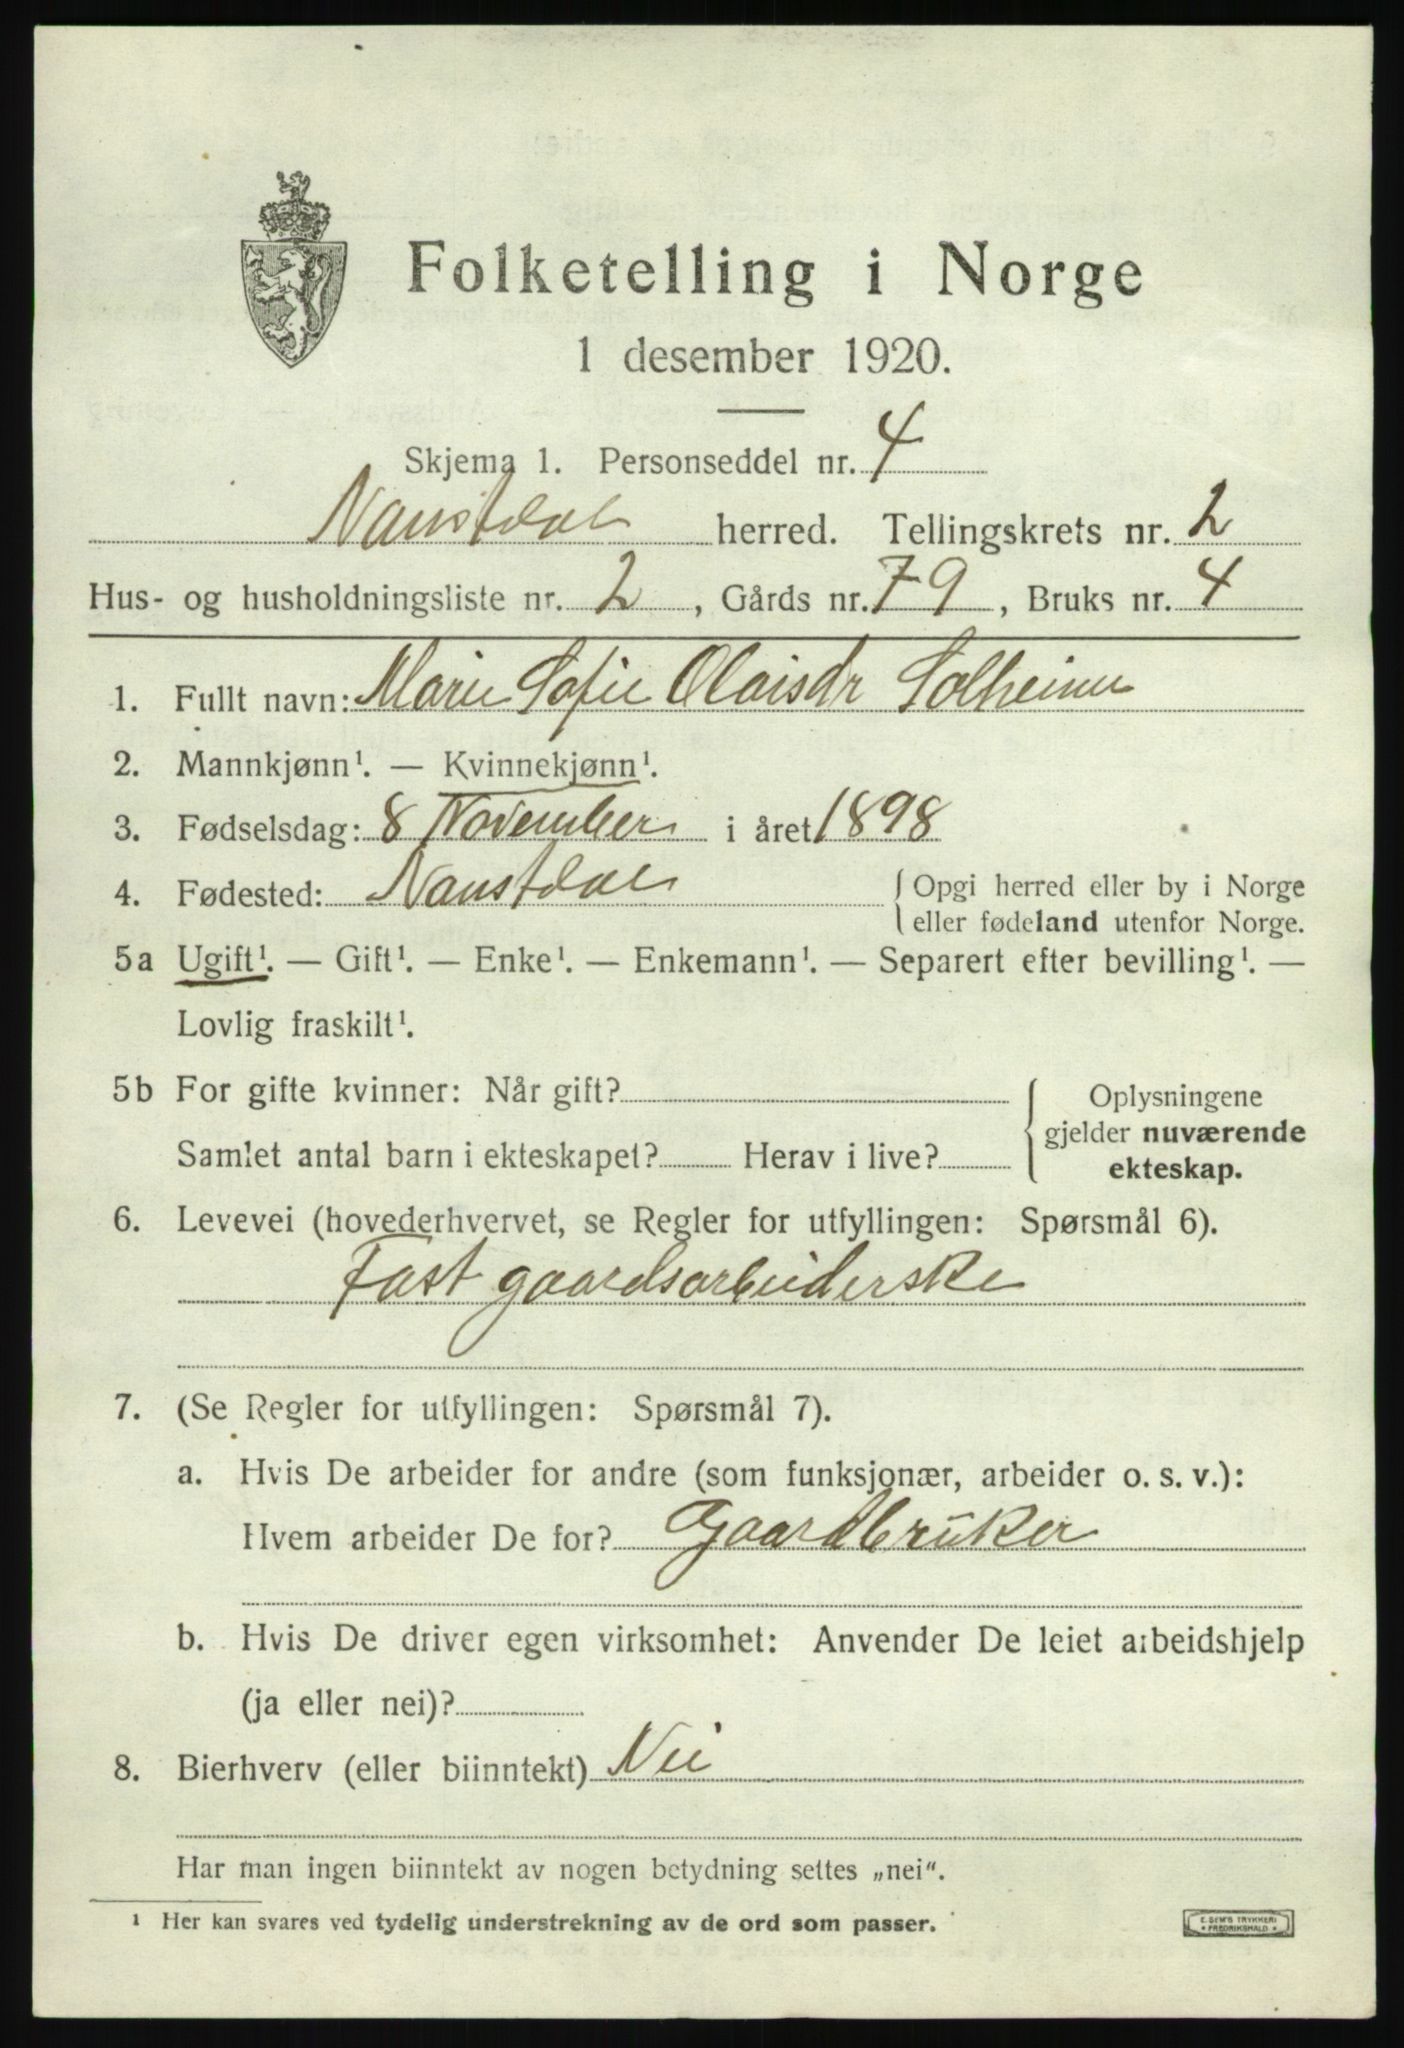 Folketelling i Norge
1 desember 1920.
Skjema 1. Personseddel nr. 4
Naustdal herred. Tellingskrets nr. 2
Hus- og husholdningsliste nr. 2, Gårds nr. 79, Bruks nr. 4
1. Fullt navn: Marie Sofie Olaisdr Solheim
2. Mannkjønn¹. — Kvinnekjønn¹.
3. Fødselsdag: 8 November i året 1898
4. Fødested: Naustdal { Opgi herred eller by i Norge
eller fødeland utenfor Norge.
5a Ugift¹. — Gift¹. — Enke¹. — Enkemann¹. — Separert efter bevilling¹. —
Lovlig fraskilt¹.
5b For gifte kvinner: Når gift? { Oplysningene
gjelder nuværende
Samlet antal barn i ekteskapet? Herav i live?
ekteskap.
6. Levevei (hovederhvervet, se Regler for utfyllingen: Spørsmål 6).
Fast gaardsarbeiderske
7. (Se Regler for utfyllingen: Spørsmål 7).
a. Hvis De arbeider for andre (som funksjonær, arbeider o. s. v.):
Hvem arbeider De for? Gaardbruker
b. Hvis De driver egen virksomhet: Anvender De leiet arbeidshjelp
(ja eller nei)?
8. Bierhverv (eller biinntekt) Nei
Har man ingen biinntekt av nogen betydning settes „nei“.
¹ Her kan svares ved tydelig understrekning av de ord som passer.
E. SEM'S TRYKKERI
* FREDRIKSHALD *